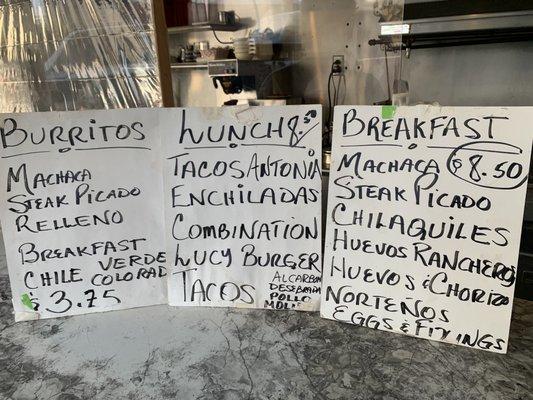 BURRITOS
MACHACA
STEAK PICADO
RELLENO
BREAKFAST
CHILE VERDE
COLORAD
$3.75
LUNCH 8.50
TACOS ANTONIA
ENCHILADAS
COMBINATION
LUCY BURGER
TACOS
ALCARBON
DESEBRADA
POLLO
BREAKFAST
MACHACA $8.50
STEAK PICADO
CHILAQUILES
HUEVOS RANCHERO
HUEVOS & CHORIZO
NORTEÑOS
EGGS & FIXINGS